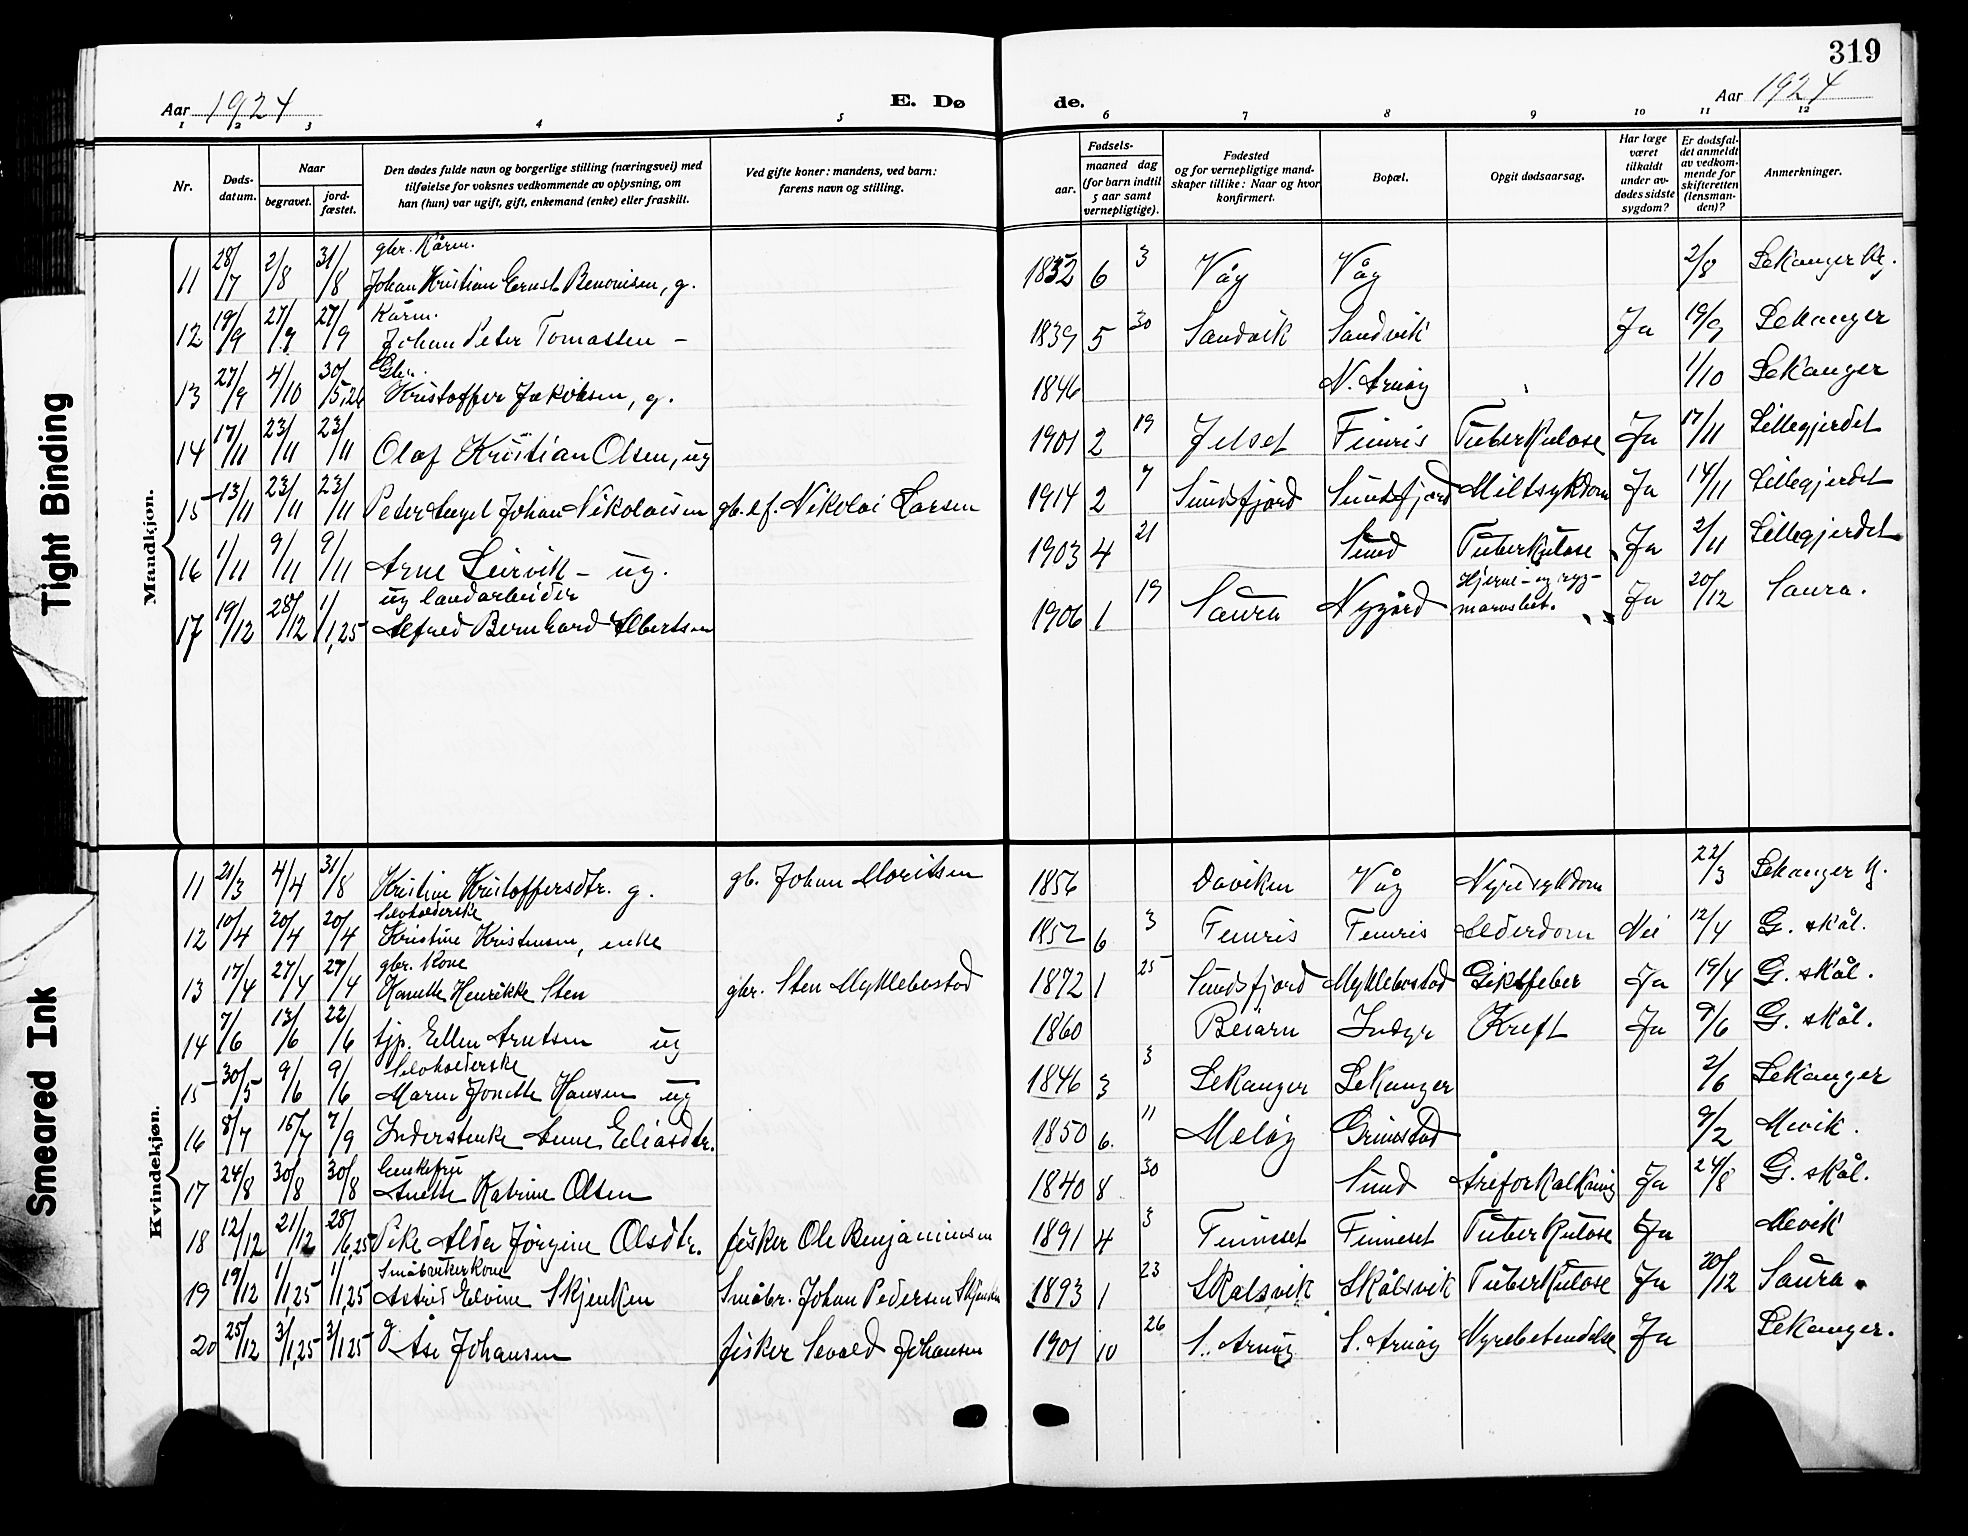 319
Aar 1924
E. Dø
de.
Aar 1924
1 2 3 4 5 6 7 8 9 10 11 12
Nr.
Døds-
datum.
Naar
begravet.
jord-
fæstet.
Den dødes fulde navn og borgerlige stilling (næringsvei) med
tilføielse for voksnes vedkommende av oplysning, om
han (hun) var ugift, gift, enkemand (enke) eller fraskilt.
Ved gifte koner: mandens, ved barn:
farens navn og stilling.
Fødsels-
aar.
maaned dag
(for barn indtil
5 aar samt
vernepligtige).
Fødested
og for vernepligtige mand-
skaper tillike: Naar og hvor
konfirmert.
Bopæl.
Opgit dødsaarsag.
Har læge
været
tilkaldt
under av-
dødes sidste
sygdom?
Er dødsfal-
det anmeldt
av vedkom-
mende for
skifteretten
(lensman-
den)?
Anmerkninger.
Mandkjøn.
gbr. Kårm.
11 28/7 2/8 31/8 Johan Kristian Ernst Benonisen, g. 1832 6 3 Våg Våg 2/8 Lekanger Kg.
Kårm.
12 19/9 27/9 27/9 Johan Peter Tomassen - 1839 5 30 Sandvik Sandvik Ja 19/9 Lekanger
13 27/9 4/10 30/5,26 Kristoffer Jakobsen, g. 1846 N. Arnøy 1/10 Lekanger
14 17/11 23/11 23/11 Olaf Kristian Olsen, ug 1901 2 19 Jelset Finnris Tuberkulose Ja 17/11 Lillegjerdet
15 13/11 23/11 23/11 Peter Johan Nikolaisen gb. ef. Nikolai Larsen 1914 2 7 Sundsfjord Sundsfjord Miltsykdom Ja 14/11 Lillegjerdet
16 1/11 9/11 9/11 Arne Leirvik - ug. 1903 4 21 Sund Tuberkulose Ja 2/11 Lillegjerdet
ug landarbeider
17 19/12 28/12 1/1,25 Alfred Bernhard Albertsen 1906 1 19 Saura Nygård Hjerne- og ryg-
marvsbet. Ja 20/12 Saura.
Kvindekjøn.
11 21/3 4/4 31/8 Kristine Kristoffersdtr. g. gb. Johan Moritsen 1856 Daviken Våg Nyresykdom 22/3 Lekanger Kg.
Selvholderske
12 10/4 20/4 20/4 Kristine Kristensen, enke 1852 6 3 Finnris Finnris Alderdom Nei 12/4 G. skål.
gbr. kone
13 17/4 27/4 27/4 Hanette Henrikke Sten gbr. Sten Myklebostad 1872 1 25 Sundsfjord Myklebostad Giktfeber Ja 19/4 G. skål.
14 7/6 13/6 22/6 tjp. Ellen Arntsen ug 1860 Beiarn Indyr Kreft Ja 9/6 G. skål.
Selvholderske
15 30/5 9/6 9/6 Maren Jonette Hansen ug 1846 3 3 Lekanger Lekanger 2/6 Lekanger
16 8/7 15/7 7/9 Inderstenke Anne Eliasdtr. 1850 6. 11 Meløy Grimstad 9/2 Mevik.
Enkefru
17 24/8 30/8 30/8 Anette Katrine Olsen 1840 8 30 Sund Åreforkalkning Ja 24/8 G. skål.
18 12/12 21/12 28/6,25 Pike Alda Jørgine Olsdtr. fisker Ole Benjaminsen 1891 4 3 Finneset Finneset Tuberkulose Ja Mevik
Småbrukerkone
19 19/12 1/1,25 1/1,25 Astrid Elvine Skjenken Småbr. Johan Pedersen Skjenken 1893 1 23 Skålsvik Skålsvik Tuberkulose Ja 20/12 Saura.
20 25/12 3/1,25 3/1,25 g Åse Johansen fisker Sevald Johansen 1901 10 26 S. Arnøy S. Arnøy Nyrebetendelse Ja Lekanger.
Tight Binding
Smeared Ink